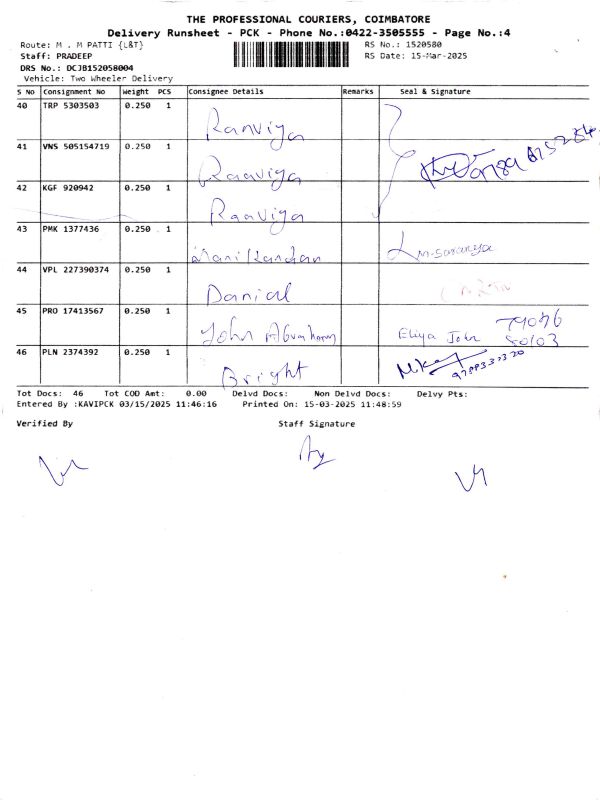 THE PROFESSIONAL COURIERS, COIMBATORE
Delivery Runsheet - PCK - Phone No.:0422-3505555 - Page No.:4
Route: M . M PATTI {L&T} RS No.: 1520580
Staff: PRADEEP RS Date: 15-Mar-2025
DRS No.: DCJB152058004
Vehicle: Two Wheeler Delivery
S No Consignment No Weight PCS Consignee Details Remarks Seal & Signature
40 TRP 5303503 0.250 1 Raaviya
41 VNS 505154719 0.250 1 Raaviya
42 KGF 920942 0.250 1 Raaviya
43 PMK 1377436 0.250 1 Manikandan M.Saranya
44 VPL 227390374 0.250 1 Danial
45 PRO 17413567 0.250 1 John Abraham Eliya John
46 PLN 2374392 0.250 1 Bright
Tot Docs: 46 Tot COD Amt: 0.00 Delvd Docs: Non Delvd Docs: Delvy Pts:
Entered By :KAVIPCK 03/15/2025 11:46:16 Printed On: 15-03-2025 11:48:59
Verified By Staff Signature